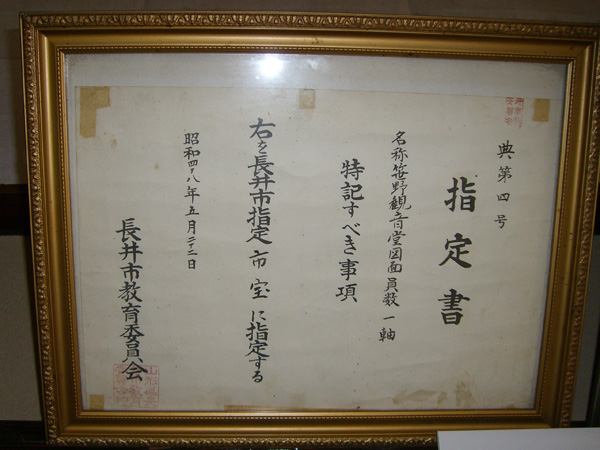 典第四号
指定書
名称笹野観音堂図面員数一軸
特記すべき事項
右を長井市指定市宝に指定する
昭和四十八年五月二十二日
長井市教育委員会